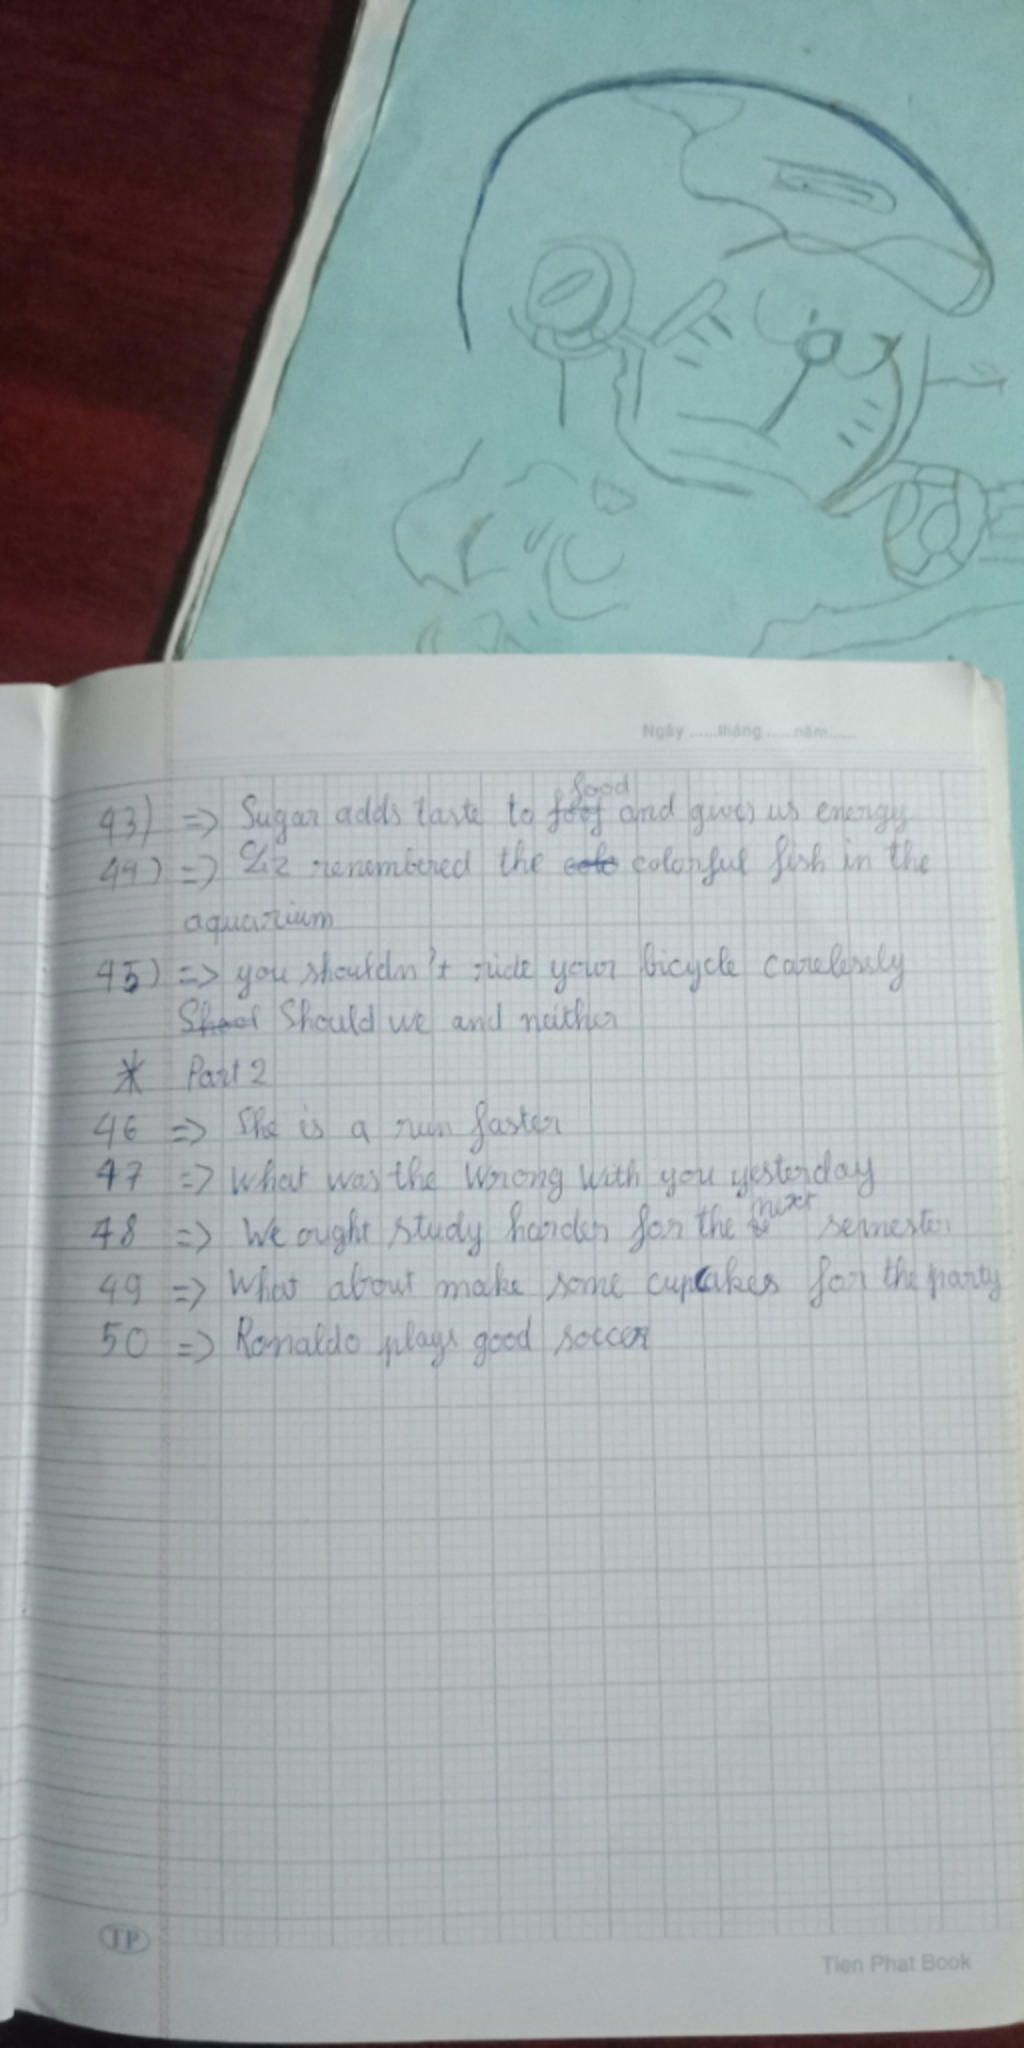 Ngày ......tháng ......năm......
food
43) => Sugar adds taste to foof and gives us energy
44) => Liz renembered the colo colorful fish in the
aquarium
45) => you shouldn't ride your bicycle carelessly
Should we and neither
* Part 2
46 => She is a run faster
47 => What was the Wrong With you yesterday
next
48 => We ought study harder for the semester
49 => What about make some cupcakes for the party
50 => Ronaldo plays good soccer
TP
Tien Phat Book